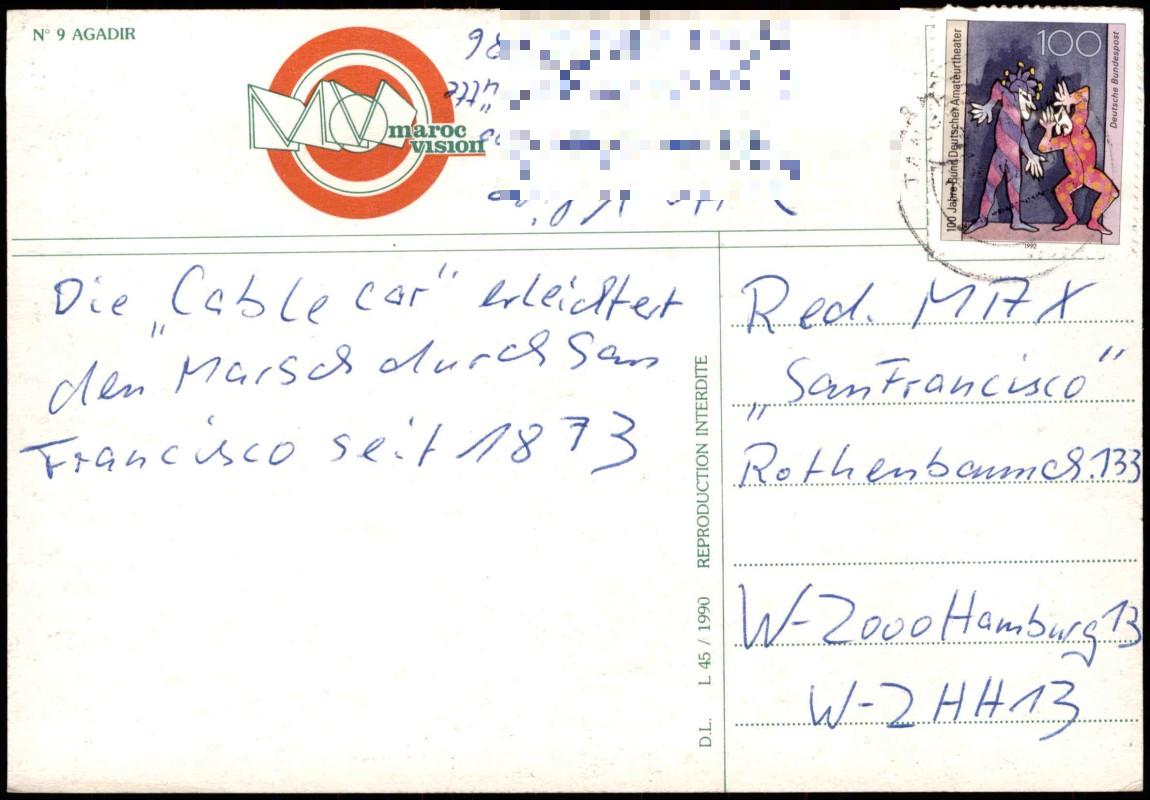 N° 9 AGADIR
maroc
vision
100
Deutsche Bundespost
100 Jahre Bund Deutscher Amateurtheater
1992
Die „Cable car“ erleichtert
den Marsch durch San
Francisco seit 1873
REPRODUCTION INTERDITE
D.L. L 45 / 1990
Red. MAX
„San Francisco“
Rothenbaumch. 133
W-2000 Hamburg 13
W-2 HH 13